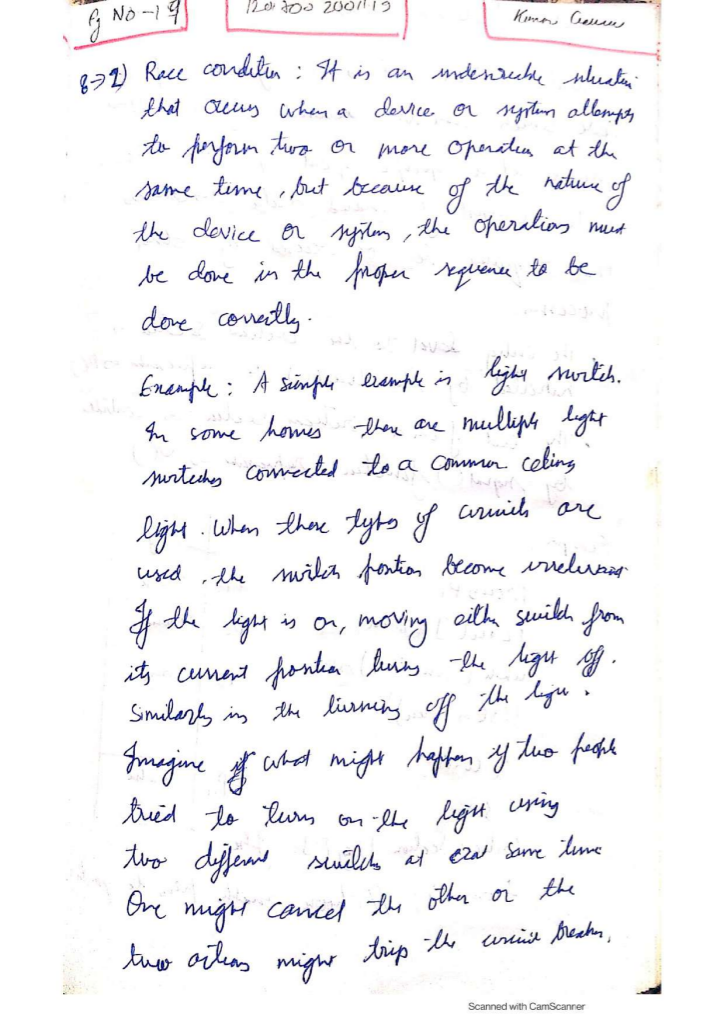 Pg No - 19
Kumar
8→1) Race condition : It is an undesirable situation
that occurs when a device or system attempts
to perform two or more operations at the
same time , but because of the nature of
the device or system , the operations must
be done in the proper sequence to be
done correctly.
Example : A simple example is light switch.
In some homes there are multiple light
switches connected to a common celing
light . When these types of circuits are
used , the switch position become irrelevant
If the light is on, moving either switch from
its current position turns the light off.
Similarly in the turning off the light .
Imagine if what might happen if two people
tried to turn on the light using
two different switch at exat same time
One might cancel the other or the
two actions might trip the circuit breaker.
Scanned with CamScanner